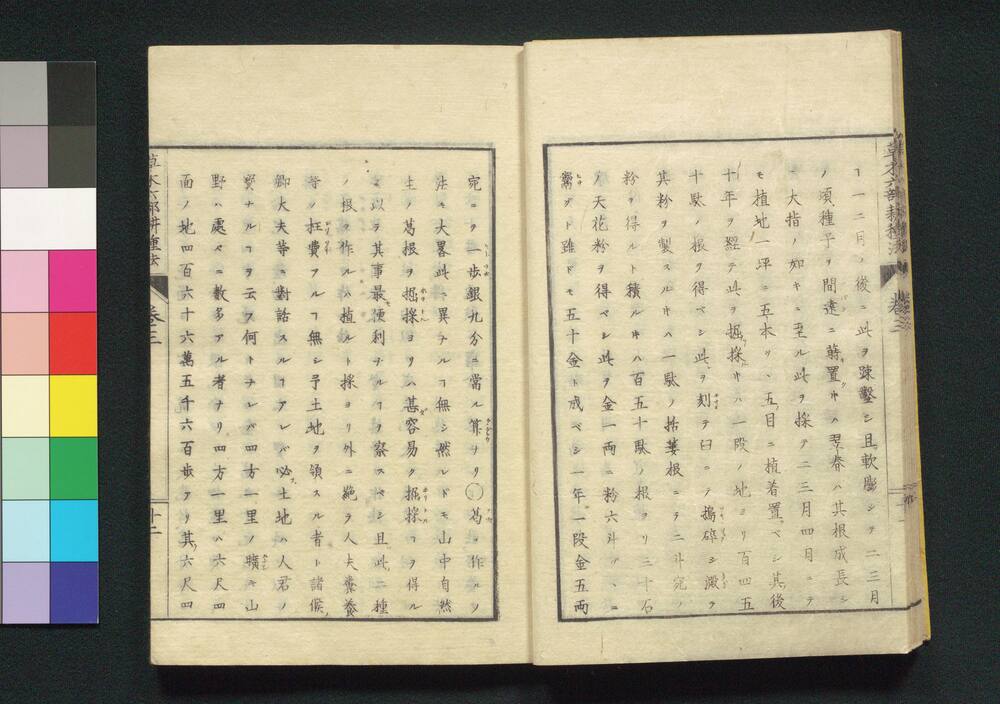 草木六部耕種法 巻三
ヿ一二月ノ後ニ此ヲ踈鑿シ且軟膨シテ二三月
ノ頃種子ヲ間遠ニ蒔置キハ翌春ハ其根成長シ
大指ノ如キニ至ル此ヲ採テ二三月四月ニテ
モ植地一坪ニ五本ツヽ五目ニ植着置ベシ其後
十年ヲ經テ此ヲ掘採キハ一段ノ地ヨリ百四五
十駄ノ根ヲ得ベシ此ヲ刻ヲ臼ニテ搗碎シ澱ヲ
其粉ヲ製スルキハ一駄ノ括蔞根ニテ二斗宛ノ
粉ヲ得ルト積ルキハ百五十駄ノ根ヲリ三十石
ノ天花粉ヲ得ベシ此ヲ金一兩ニ粉六斗ツヽニ
鬻グト雖ドモ五十金ト成ベシ一年一段金五兩
宛ニヲ一歩銀九分ニ當ル算ナリ〇葛ヲ作ルノ
法モ大畧此ト異ナルヿ無シ然レドモ山中自然
生ノ葛根ヲ掘採ヨリハ甚容易ク掘採ヿヲ得ル
ヲ以テ其事最モ便利ナルヿヲ察スベシ且此二種
ノ根ヲ作ルハ植ルト採ヨリ外ニ絶テ人夫養養
等ノ抂費アルヿ無シ予土地ヲ領スル者ト諸侯
卿大夫等ニ對話スルヿアレバ必ズ土地ハ人君ノ
寳ナルヿヲ云フ何トナレバ四方一里ノ曠キ山
野ハ處々ニ數多アル者ナリ四方一里ハ六尺四
面ノ地四百六十六萬五千六百歩アリ其六尺四
草木六部耕種法 巻三 十二